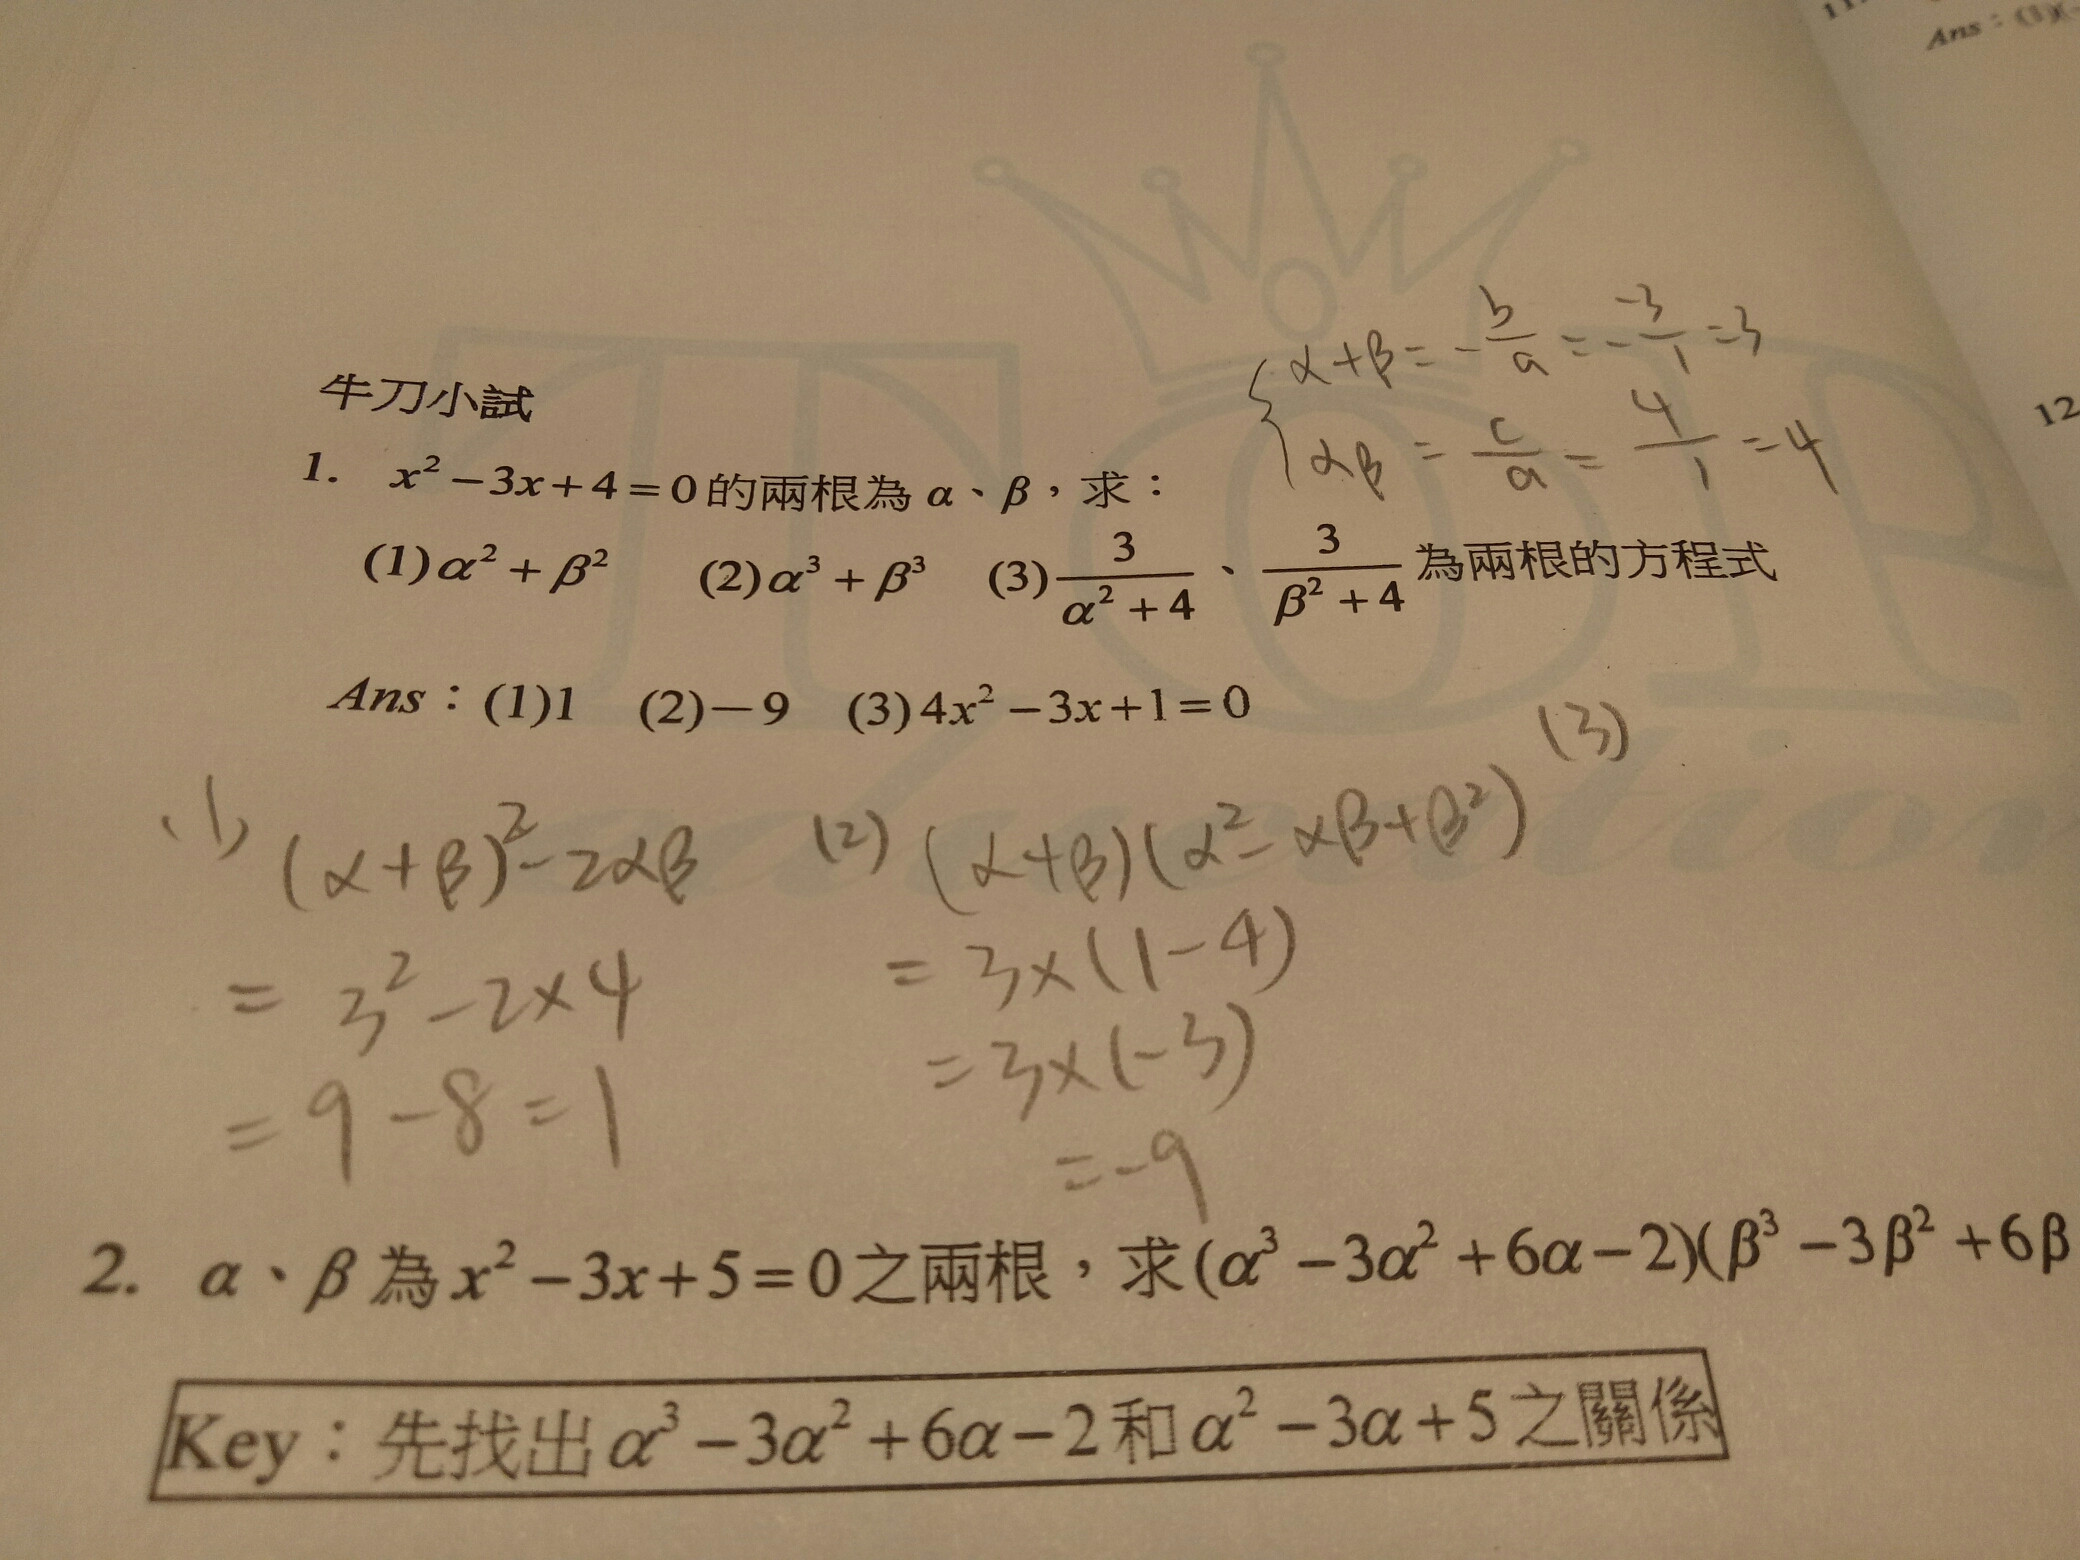 Ans：(
12
牛刀小試
{α+β=-b/a=-(-3)/1=3
αβ=c/a=4/1=4
1. x²－3x＋4＝0的兩根為α、β，求：
(1)α²＋β² (2)α³＋β³ (3)3/(α²＋4)、3/(β²＋4)為兩根的方程式
Ans：(1)1 (2)－9 (3)4x²－3x＋1＝0
(1) (α+β)²-2αβ
= 3²-2×4
= 9-8=1
(2) (α+β)(α²-αβ+β²)
= 3×(1-4)
= 3×(-3)
= -9
(3)
2. α、β為x²－3x＋5＝0之兩根，求(α³－3α²＋6α－2)(β³－3β²＋6β
Key：先找出α³－3α²＋6α－2和α²－3α＋5之關係
TOP